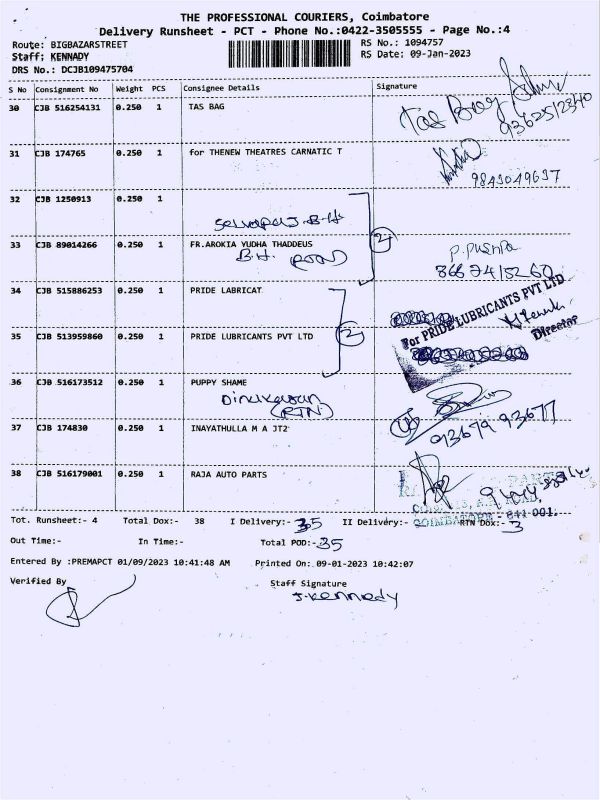 THE PROFESSIONAL COURIERS, Coimbatore
Delivery Runsheet - PCT - Phone No.:0422-3505555 - Page No.:4
Route: BIGBAZARSTREET
RS No.: 1094757
Staff: KENNADY
RS Date: 09-Jan-2023
DRS No.: DCJB109475704
S No Consignment No Weight PCS Consignee Details Signature
30 CJB 516254131 0.250 1 TAS BAG
31 CJB 174765 0.250 1 for THENEW THEATRES CARNATIC T
9843049637
32 CJB 1250913 0.250 1
Selvaraj B.H.
33 CJB 89014266 0.250 1 FR.AROKIA YUDHA THADDEUS
B.H. (RTN)
2
P. Pushpa
34 CJB 515886253 0.250 1 PRIDE LABRICAT
For PRIDE LUBRICANTS PVT LTD
Director
35 CJB 513959860 0.250 1 PRIDE LUBRICANTS PVT LTD
2
36 CJB 516173512 0.250 1 PUPPY SHAME
Dinakaran
(RTN)
93679 93677
37 CJB 174830 0.250 1 INAYATHULLA M A JT2
38 CJB 516179001 0.250 1 RAJA AUTO PARTS
COIMBATORE - 641 001.
Tot. Runsheet:- 4 Total Dox:- 38 I Delivery:- 35 II Delivery:- RTN Dox:- 3
Out Time:- In Time:- Total POD:- 35
Entered By :PREMAPCT 01/09/2023 10:41:48 AM Printed On:-09-01-2023 10:42:07
Verified By Staff Signature
J. Kennedy